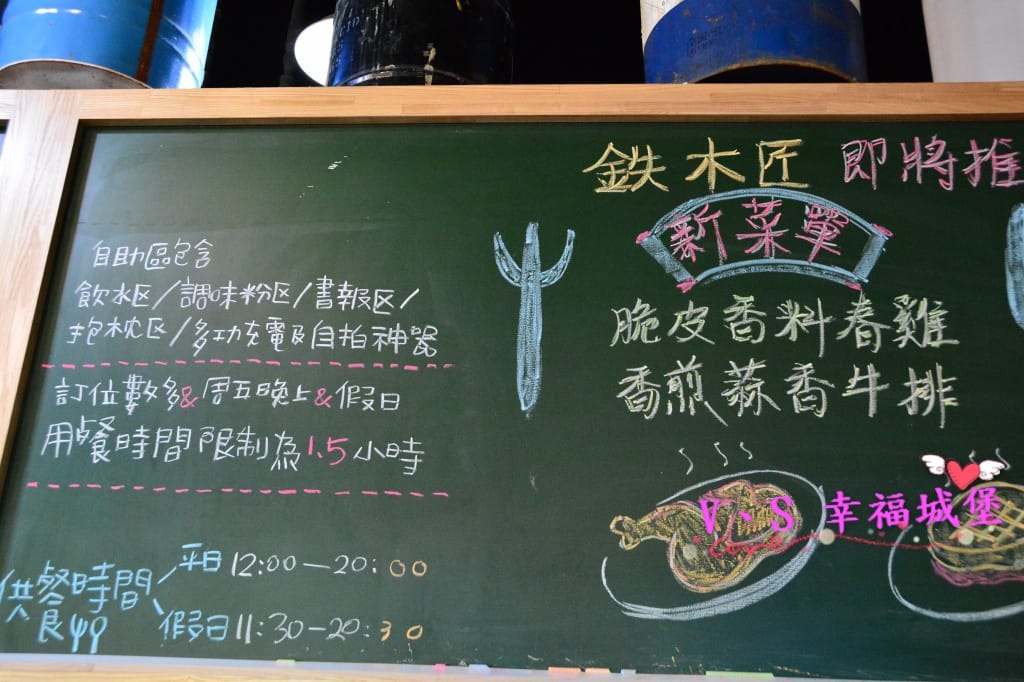 自助區包含
飲水区/調味粉区/書報区/
抱枕区/多功充電及自拍神器
訂位數多&周五晚上&假日
用餐時間限制為1.5小時
供餐時間
平日12:00—20:00
假日11:30—20:30
鉄木匠 即將推
新菜單
脆皮香料春雞
香煎蒜香牛排
V、S 幸福城堡